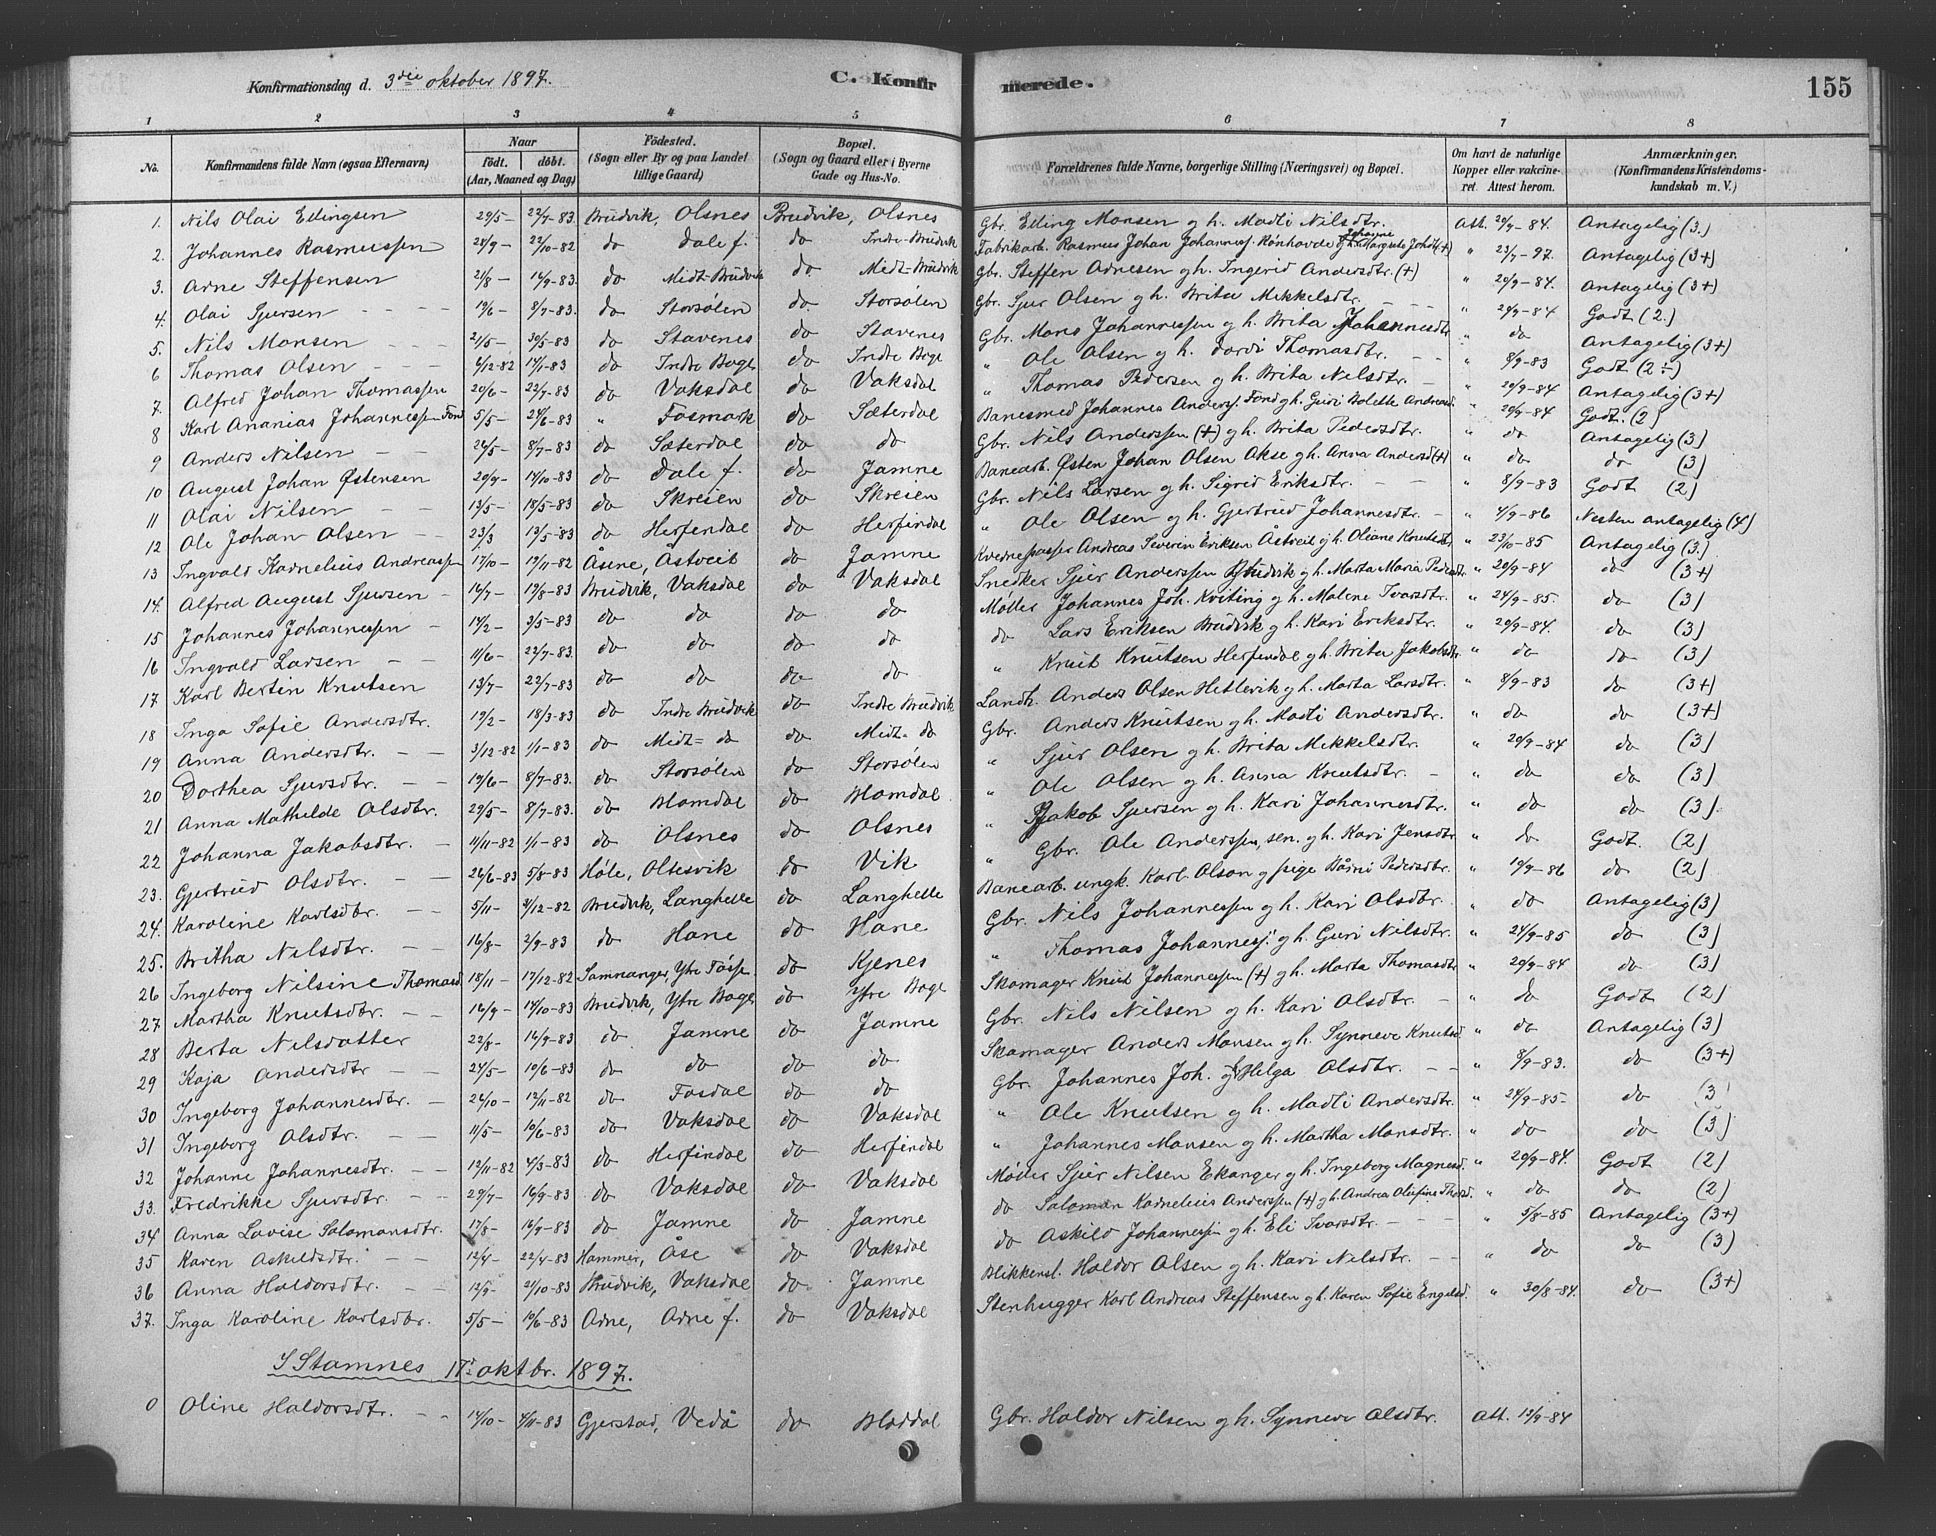 Konfirmationsdag d. 3die oktober 1897. C. Konfirmerede. 155
1 2 3 4 5 6 7 8
No. Konfirmandens fulde Navn (ogsaa Efternavn) Naar födt. döbt. (Aar, Maaned og Dag) Födested. (Sogn eller By og paa Landet tillige Gaard) Bopæl. (Sogn og Gaard eller i Byerne Gade og Hus-No. Forældrenes fulde Navne, borgerlige Stilling (Næringsvei) og Bopæl. Om havt de naturlige Kopper eller vaccineret. Attest herom. Anmærkninger. (Konfirmandens Kristendomskundskab m. V.)
1. Nils Olai Edingsen 29/5- 22/7-83 Brudvik, Olsnes Brudvik, Olsnes Gbr. Eding Monsen og h. Madli Nilsdtr. Att. 20/9-84. Antagelig (3.)
2. Johannes Rasmussen 28/9- 22/10-82 do Dale f. do Indre-Brudvik Fabrikarb. Rasmus Johan Johanness. Rønhovde og h. Johanne Margrete Johsdtr (+) " 23/7-97. Antagelig (3+)
3. Arne Steffensen 21/8- 16/9-83. do Midt-Brudvik do. Midt-Brudvik Gbr. Steffen Arnesen og h. Ingerid Andersdtr. (+) " 20/9-84. Antagelig (3+)
4. Olai Sjursen 19/6- 8/7-83. do Storsølen do. Storsølen Gbr. Sjur Olsen og h. Brita Mikkelsdtr. " 20/9-84 Godt (2.)
5. Nils Monsen 21/5- 30/5-83 do Stavenes do Stavenes Gbr. Mons Johannessen og h. Brita Johannesdtr " do Antagelig (3+)
6 Thomas Olsen 6/12-82 14/1-83 do Indre Boge do Indre Boge " Ole Olsen og h. Dordi Thomasdtr. " 8/9-83 Godt (2÷)
7. Alfred Johan Thomassen 20/6- 22/7-83 do Vaksdal do Vaksdal " Thomas Pedersen og h. Brita Nilsdtr. " 20/9-84 Antagelig (3+)
8 Karl Ananias Johannessen Fond 5/5- 24/6-83 " Fosmark do Sæterdal Banesmed Johannes Anderss. Fond og h. Guri Bolette Andread. " 20/9-84 Godt. (2)
9 Anders Nilsen 26/5- 8/7-83 do Sæterdal do do Gbr. Nils Anderssen (+) og h. Brita Pedersdtr. " do Antagelig (3)
10 August Johan Østensen 20/9- 14/10-83 do Dale f. do Jamne Banearb. Østen Johan Olsen Akse og h. Anna Andersd (+) " do do (3)
11 Olai Nilsen 13/5- 18/5-83 do Skreien do Skreien Gbr. Nils Larsen og h. Sigrid Eriksdtr. " 8/9-83 Godt (2.)
12 Ole Johan Olsen 23/3 13/5-83 do Herfindal do Herfindal " Ole Olsen og h. Gjertrud Johannesdtr. " 4/9-86 Nesten antagelig (4)
13 Ingvald Kornelius Andreassen 17/10- 19/11-82 Åsene, Åstveit do Jamne Kvernepasser Andreas Severin Eriksen Åstveit og h. Oliane Knutsdtr " 23/10-85 Antagelig (3.)
14. Alfred August Sjursen 16/7- 19/8-83 Brudvik, Vaksdal do Vaksdal Snedker Sjur Anderssen Brudvik og h. Marta Maria Pedersdtr " 20/9-84 do (3+)
15 Johannes Johannessen 14/2- 3/5-83 do do do do Møller Johannes Joh. Kviting og h. Malene Ivarsdtr. " 24/9-85. do (3)
16 Ingvald Larsen 11/6- 22/7-83. do do do do do Lars Eriksen Brudvik og h. Kari Eriksdtr. " 20/9-84. do (3)
17 Karl Bertin Knutsen 13/7- 22/7-83 do do do do " Knut Knutsen Herfindal og h. Brita Jakobsdtr " do do (3)
18 Inga Sofie Andersdtr. 19/2- 18/3-83 do Indre Brudvik do Indre Brudvik Landh. Anders Olsen Hetlevik og h. Marta Larsdtr. " 8/9-83 do (3+)
19 Anna Andersdtr. 3/12-82 1/1-83 do Midt= do do Midt= do Gbr. Anders Knutsen og h. Madli Andersdtr. " do do (3+)
20 Dorthea Sjursdtr. 19/6- 8/7-83. do Storsølen do Storsølen " Sjur Olsen og h. Brita Mikkelsdtr. " 20/9-84 do (3)
21 Anna Mathilde Olsdtr. 29/5- 8/7-83. do Blomdal do Blomdal. " Ole Olsen og h. Anna Knutsdtr. " do do (3)
22 Johanna Jakobsdtr. 11/11-82 1/1-83 do Olsnes do Olsnes " Jakob Sjursen og h. Kari Johannesdtr. " do do (3).
23. Gjertrud Olsdtr. 26/6-83 5/8-83 Høle, Oltesvik do Vik " Gbr. Ole Anderssen, sen. og h. Kari Jensdtr " do Godt. (2)
24. Karoline Karlsdtr. 5/11- 3/12-82 Brudvik, Langhelle do Langhelle Banearb. ungk. Karl Olson og pige Bårni Pedersdtr. " 19/9-86 do (2)
25. Britha Nilsdtr. 16/8- 2/9-83 do Hane do Hane Gbr. Nils Johannessen og h. Kari Olsdtr. " do Antagelig (3)
26 Ingeborg Nilsine Thomasd. 18/11- 17/12-82 Samnanger, Ytre Tøsse. do Kjenes " Thomas Johanness. og h. Guri Nilsdtr. " 24/9-85 do (3)
27. Martha Knutsdtr. 16/9- 14/10-83 Brudvik, Ytre Boge do Ytre Boge Skomager Knut Johannessen (+) og h. Marta Thomasdtr " 20/9-84 do (3)
28 Berta Nilsdatter 22/8- 16/9-83 do Jamne do Jamne Gbr. Nils Nilsen og h. Kari Olsdtr. " do Godt (2)
29 Kaja Andersdtr 24/5- 10/6-83 do do do do Skomager Anders Monsen og h. Synneve Knutsd. " do Antagelig (3)
30 Ingeborg Johannesdtr. 26/10- 12/11-82 do Fosdal do do Gbr. Johannes Joh. og Helga Olsdtr. " 8/9-83. do (3+)
31 Ingeborg Olsdtr. 11/5- 10/6-83 do Vaksdal do Vaksdal " Ole Knutsen og h. Madli Andersdtr. " 24/9-85- do (3
32 Johanne Johannesdtr. 12/11-82 4/3-83 do Herfindal do Herfindal " Johannes Monsen og h. Martha Monsdtr. " do do (3)
33. Fredrikke Sjursdtr. 29/7- 16/9-83 do Vaksdal do Vaksdal Møller Sjur Nilsen Ekanger og h. Ingeborg Magnesd. " 20/9-84. Godt (2)
34 Anna Lovise Salomonsdtr. 17/8- 16/9-83 do Jamne do Jamne do Salomon Kornelius Anderssen (+) og h. Andrea Olufine Thorsd. " do do (2)
35 Karen Askildsdtr. 12/4- 22/4-83 Hammer, Åse do Vaksdal do Askild Johannessen og h. Eli Ivarsdtr. " 5/8-85 Antagelig (3+)
36 Anna Haldorsdtr. 12/9- 21/10-83 Brudvik, Vaksdal do Jamne Blikkensl. Haldor Olsen og h. Kari Nilsdtr. " do do (3)
37. Inga Karoline Karlsdtr. 5/5- 10/6-83 Arne, Arne f. do Vaksdal Stenhugger Karl Andreas Steffensen og h. Karen Sofie Engelsd. " 30/8-84. do (3+)
I Stamnes 17. oktbr. 1897.
0 Oline Haldorsdtr. 14/10- 4/11-83 Gjerstad, Vedå do Bloddal Gbr. Haldor Nilsen og h. Synneve Olsdtr. Att. 13/9-84